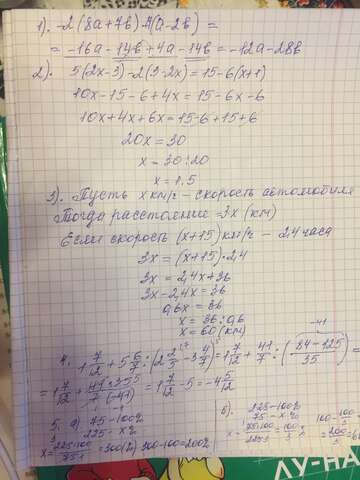 1). -2(8a+7b)+4(a-2b)=
= -16a-14b+4a-14b=-12a-28b
2). 5(2x-3)-2(3-2x)=15-6(x+1)
10x-15-6+4x=15-6x-6
10x+4x+6x=15-6+15+6
20x=30
x=30:20
x=1.5
3). Пусть x км/ч - скорость автомобиля
Тогда расстояние =3x (км)
Если скорость (x+15) км/ч - 2,4 часа
3x=(x+15)·2,4
3x=2,4x+36
3x-2,4x=36
0,6x=36
x=36:0,6
x=60(км)
4. 1 7/12 + 5 6/7 : (2 2/5 - 3 4/7) = 1 7/12 + 41/7 : (84-125/35) =
= 1 7/12 + 41·35/7·(-41) = 1 7/12 - 5 = -4 5/12
5. a) 75-100%
225-x%
x= 225·100/75·1 =300(%) 300-100=200%
б). 225-100%
75-x%
x= 75·100/225 = 100/3 %
ЛУ-НА